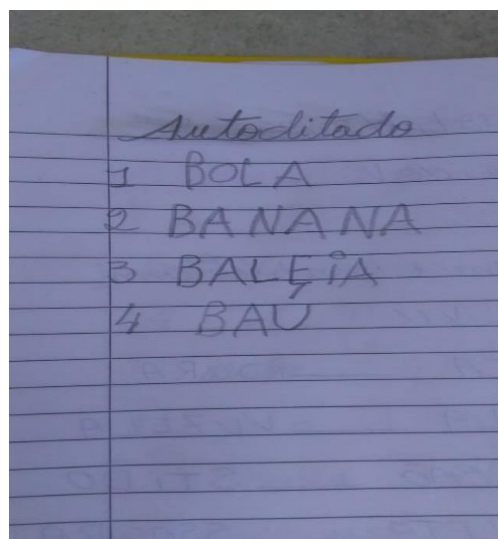 Autoditado
1 BOLA
2 BANANA
3 BALEiA
4 BAÚ